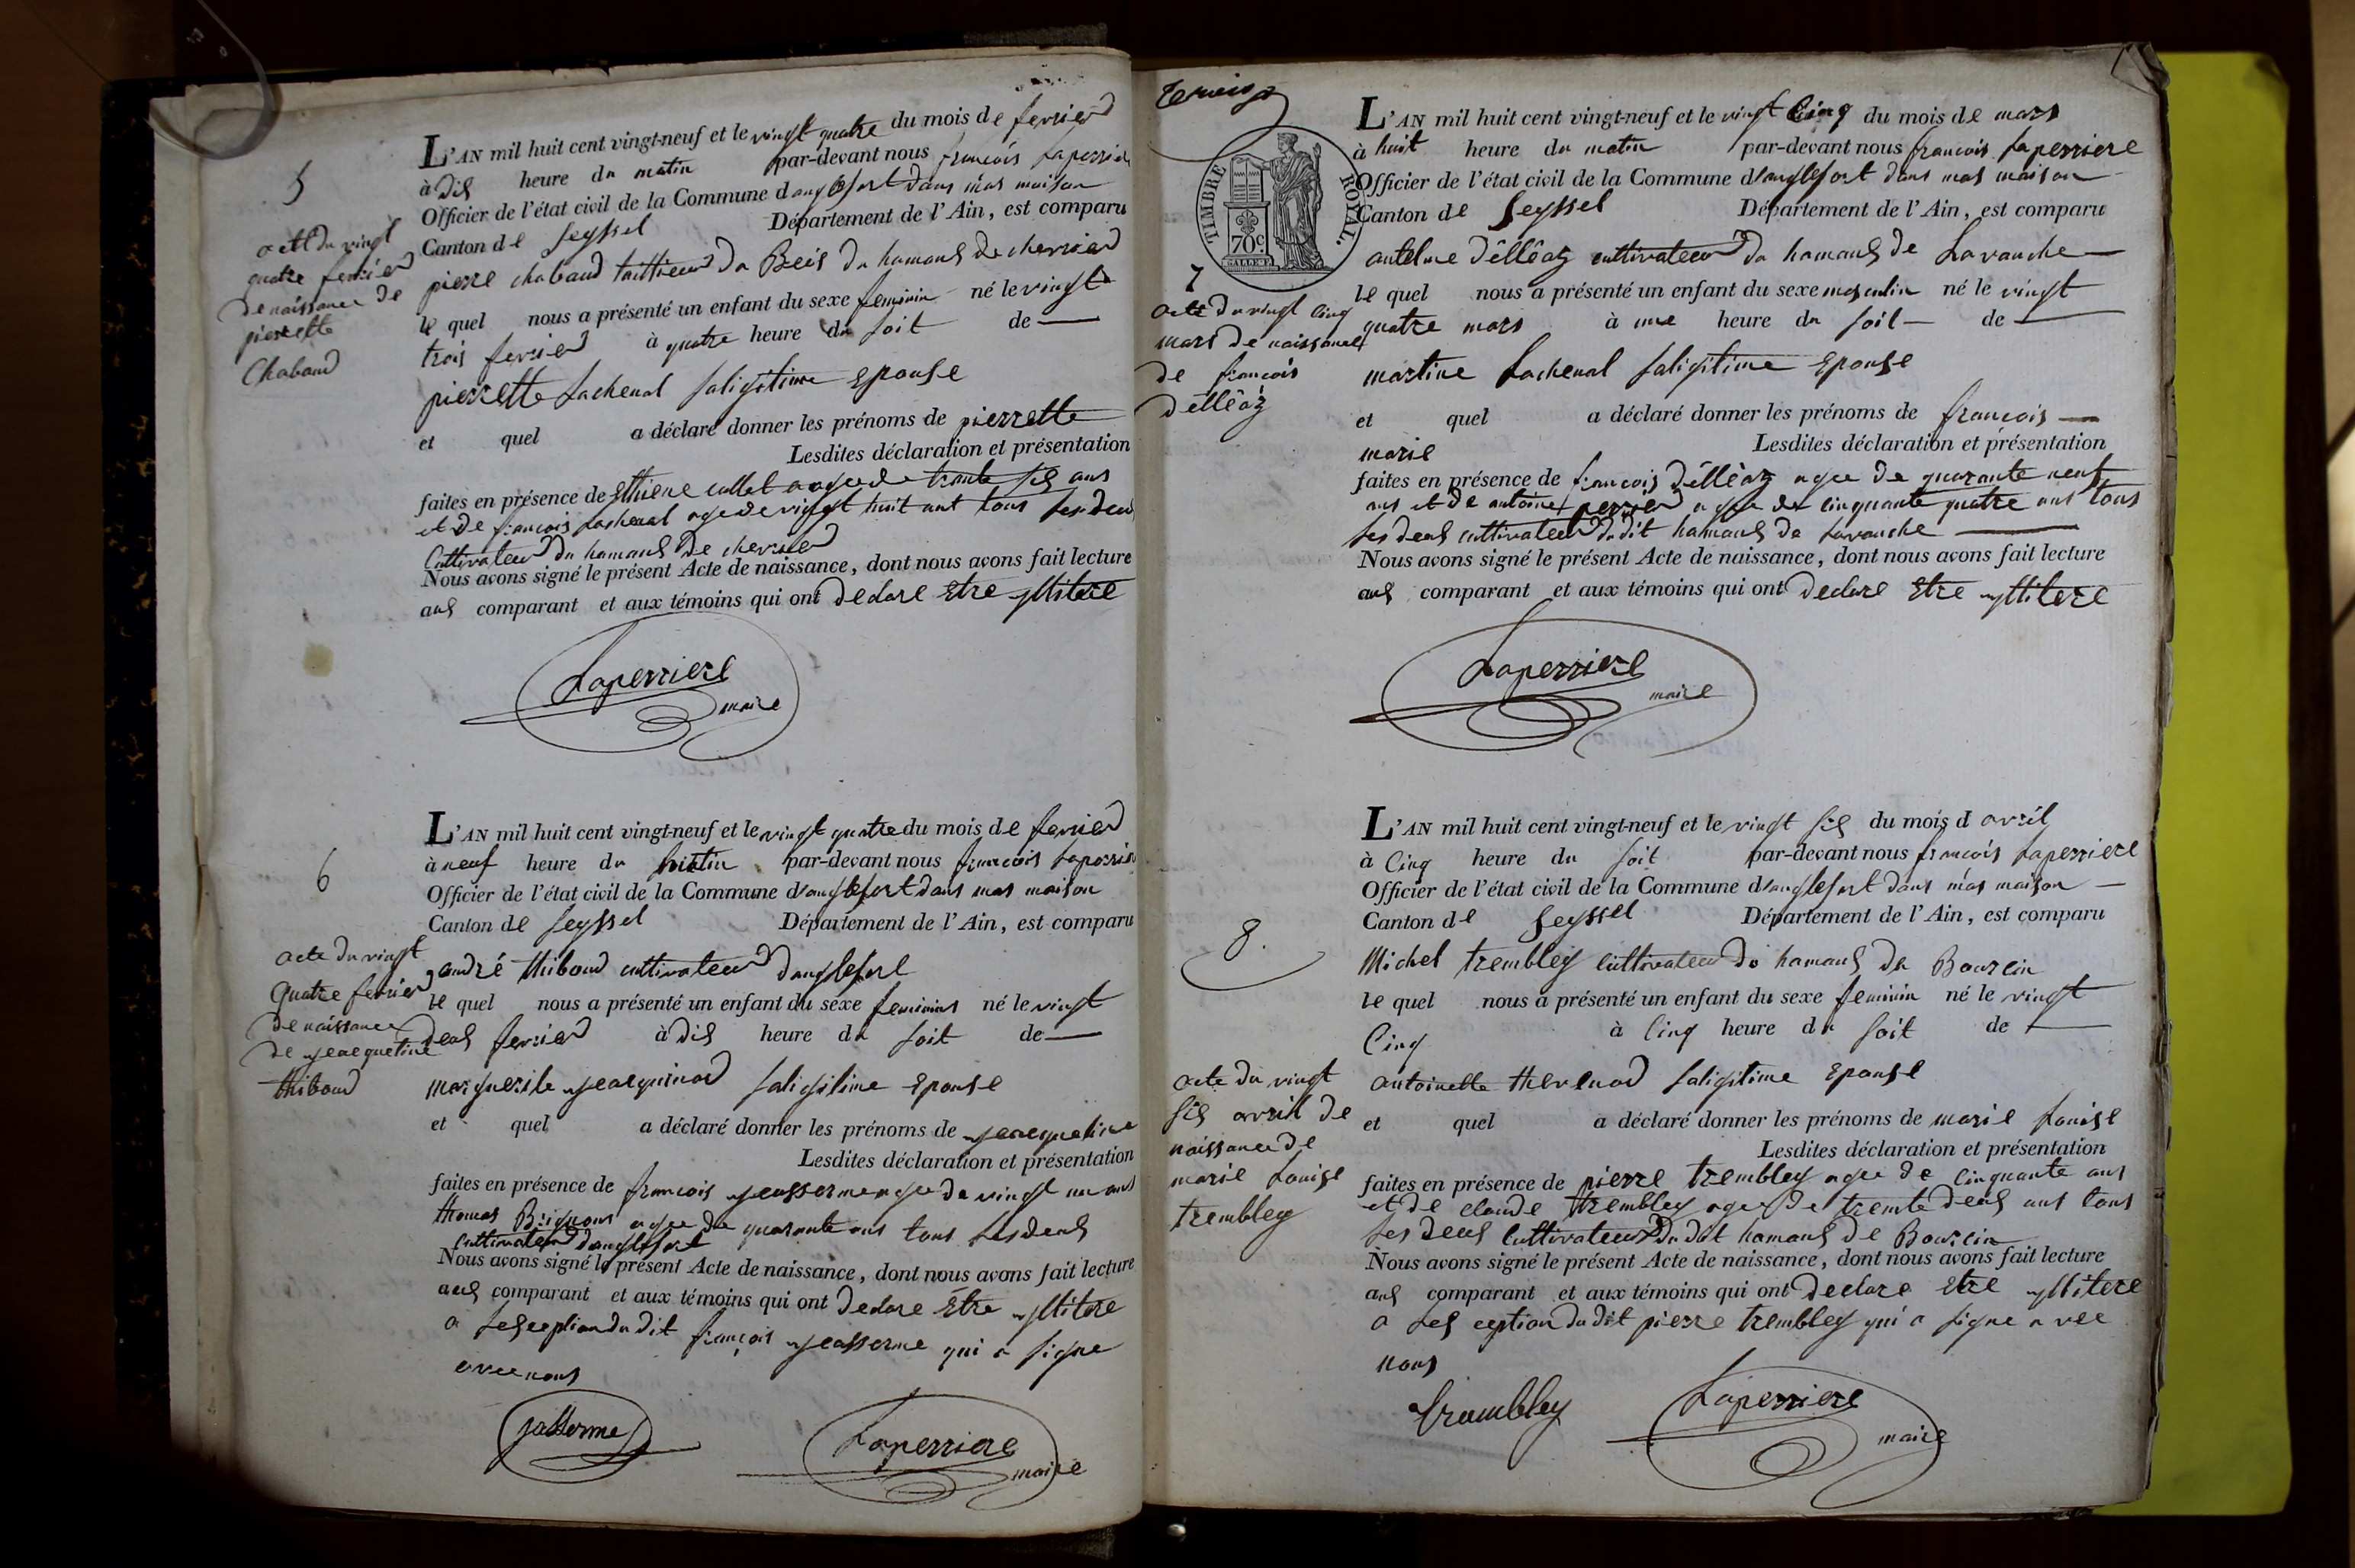 5
acte du vingt
quatre fevrier
de naissance de
pierrette
Chaboud
L'AN mil huit cent vingt-neuf et le vingt quatre du mois de fevrier
à dix heure du matin par-devant nous francois Laperrier
Officier de l'état civil de la Commune d'anglefort dans mas maison
Canton de Seyssel Département de l'Ain, est comparu
pierre chaboud du hamaux de chevrier
le quel nous a présenté un enfant du sexe feminin né le vingt
trois fevrier à quatre heure du soit de
pierrette Lachenal saligitime Epouse
et quel a déclaré donner les prénoms de pierrette
Lesdites déclaration et présentation
faites en présence de Ethiene collet agee de trante six ans
et de francois Lachenal age de vingt huit ant tous les deux
Cultivateur du hamaux de chevrier
Nous avons signé le présent Acte de naissance, dont nous avons fait lecture
aux comparant et aux témoins qui ont declare Etre yllitere
Laperriere
maire
6
acte du vingt
quatre fevrier
de naissance
de jeacqueline
thiboud
L'AN mil huit cent vingt-neuf et le vingt quatre du mois de fevrier
à neuf heure du matin par-devant nous francois Laperrier
Officier de l'état civil de la Commune d'anglefort dans mas maison
Canton de Seyssel Département de l'Ain, est comparu
andré thiboud cultivateur d'anglefort
le quel nous a présenté un enfant du sexe feminins né le vingt
deux fevrier à dix heure du soit de
marguerite jeacquinod saligitime Epouse
et quel a déclaré donner les prénoms de jeacqueline
Lesdites déclaration et présentation
faites en présence de francois jeasserme agee de vingt un ans
thomas Brignons agee de quarante ans tous les deux
cultivateur d'anglefort
Nous avons signé le présent Acte de naissance, dont nous avons fait lecture
aux comparant et aux témoins qui ont declare Etre yllitere
a lexception du dit françois jeasserme qui a signe
avec nous
jasserme
Laperriere
maire
TIMBRE ROYAL.
70c.
7
acte du vingt cinq
mars de naissance
de francois
délléaz
L'AN mil huit cent vingt-neuf et le vingt Cinq du mois de mars
à huit heure du matin par-devant nous francois Laperriere
Officier de l'état civil de la Commune d'anglefort dans mas maison
Canton de Seyssel Département de l'Ain, est comparu
antelme délléaz cultivateur du hamaux de Lavanche
le quel nous a présenté un enfant du sexe masculin né le vingt
quatre mars à une heure du soit de
martine Lachenal saligitime Epouse
et quel a déclaré donner les prénoms de francois
marie
Lesdites déclaration et présentation
faites en présence de francois délléaz agee de quarante neuf
ans et de antoine perrier agee de cinquante quatre ans tous
les deux cultivateur du dit hamaux de Lavanche
Nous avons signé le présent Acte de naissance, dont nous avons fait lecture
aux comparant et aux témoins qui ont declare Etre yllitere
Laperriere
maire
8.
acte du vingt
six avril de
naissance de
marie Louise
trembley
L'AN mil huit cent vingt-neuf et le vingt six du mois d avril
à Cinq heure du soit par-devant nous francois Laperriere
Officier de l'état civil de la Commune d'anglefort dans mas maison
Canton de Seyssel Département de l'Ain, est comparu
Michel trembley cultivateur du hamaux du Bourcin
le quel nous a présenté un enfant du sexe feminin né le vingt
Cinq à Cinq heure du soit de
antoinette thevenod saligitime Epouse
et quel a déclaré donner les prénoms de marie Louise
Lesdites déclaration et présentation
faites en présence de pierre trembley agee de cinquante ans
et de claude trembley agee de tremte deux ans tous
les deux cultivateur du dit hamaux de Bourcin
Nous avons signé le présent Acte de naissance, dont nous avons fait lecture
aux comparant et aux témoins qui ont declare Etre yllitere
a lex ception du dit pierre trembley qui a signe avec
nous
trembley
Laperriere
maire